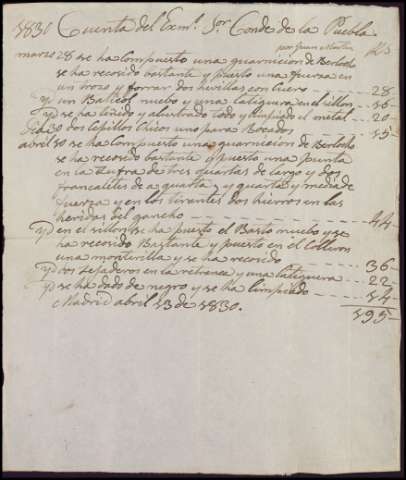 1830 Cuenta del Exmo. Sor. Conde de la Puebla
por Juan Martin Rs
marzo 28 se ha compuesto una guarnicion de Berlocho
se ha recosido bastante y puesto una fuerza en
un trozo y forrar dos hevillas con cuero 28
Yd un Baticol nuebo y una latiguera en el sillon 16
Yd se ha teñido y alustrado todo y limpiado el metal 20
Dia 30 dos cepillos chicos uno para Bocados 15
abril 10 se ha compuesto una guarnicion de Berlocho
se ha recosido bastante y puesto una punta
en la zufra de tres quartas de largo y dos
francaletes de a quarta y quarta y media de
fuerza y en los tirantes dos hierros en las
heridas del gancho 44
Yd en el sillon se ha puesto el Basto nuebo y se
ha recosido Bastante y puesto en el Colleron
una monterilla y se ha recosido 36
Yd dos zejaderos en la retranca y una latiguera 22
Yd se ha dado de negro y se ha limpiado 14
Madrid abril 13 de 1830. 195